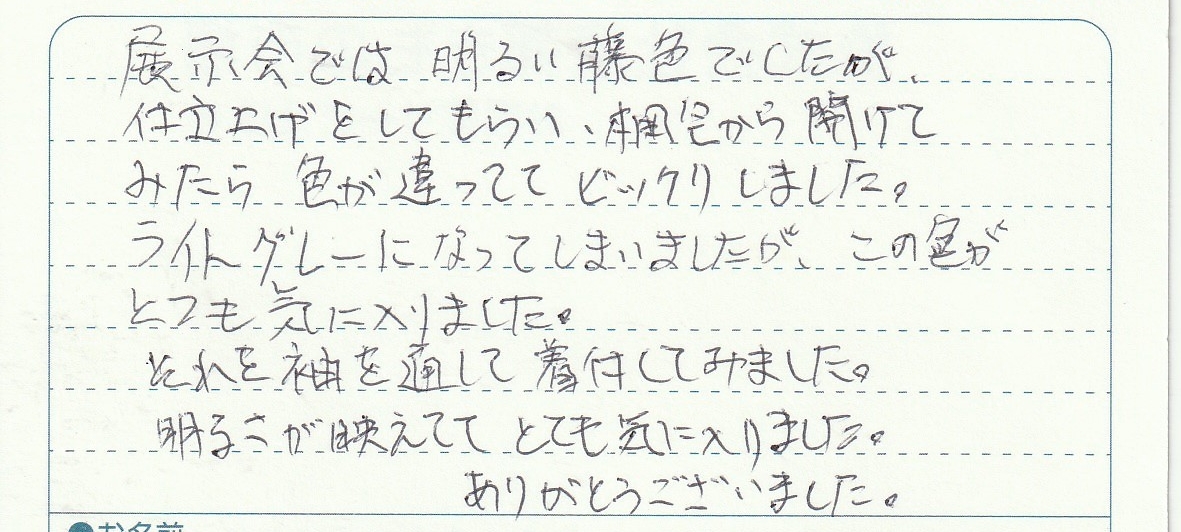 展示会では 明るい藤色でしたが、
仕立上げをしてもらい、梱包から開けて
みたら 色が違ってて ビックリしました。
ライトグレーになってしまいましたが、この色が
とても気に入りました。
それを袖を通して着付してみました。
明るさが映えてて とても気に入りました。
ありがとうございました。
●お名前